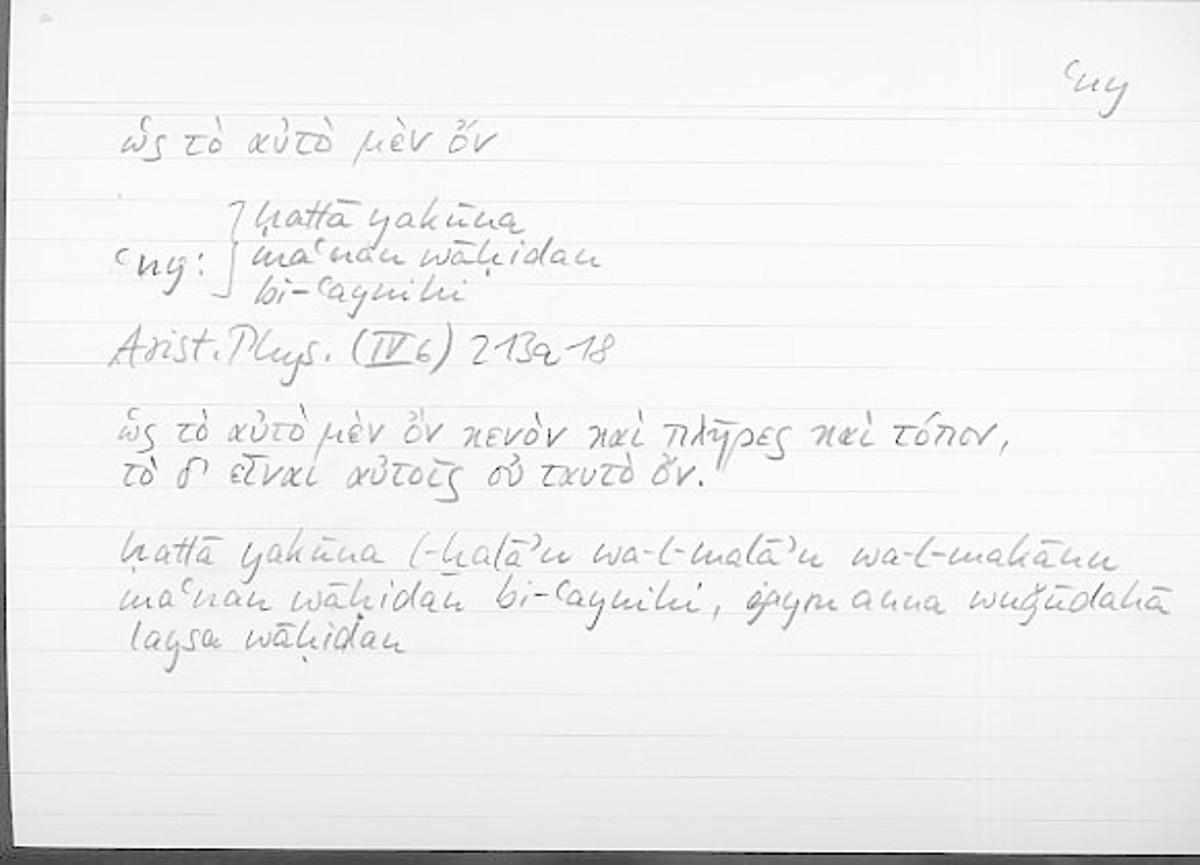 ʿny
ὡς τὸ αὐτὸ μὲν ὄν
ḥattā yakūna
ʿny: maʿnan wāḥidan
bi-ʿaynihi
Arist. Phys. (IV 6) 213a 18
ὡς τὸ αὐτὸ μὲν ὂν κενὸν καὶ πλῆρες καὶ τόπον,
τὸ δ' εἶναι αὐτοῖς οὐ ταυτὸ ὄν.
ḥattā yakūna l-ḫalāʾu wa-l-malāʾu wa-l-makānu
maʿnan wāḥidan bi-ʿaynihi, anna wuǧūdahā
laysa wāḥidan